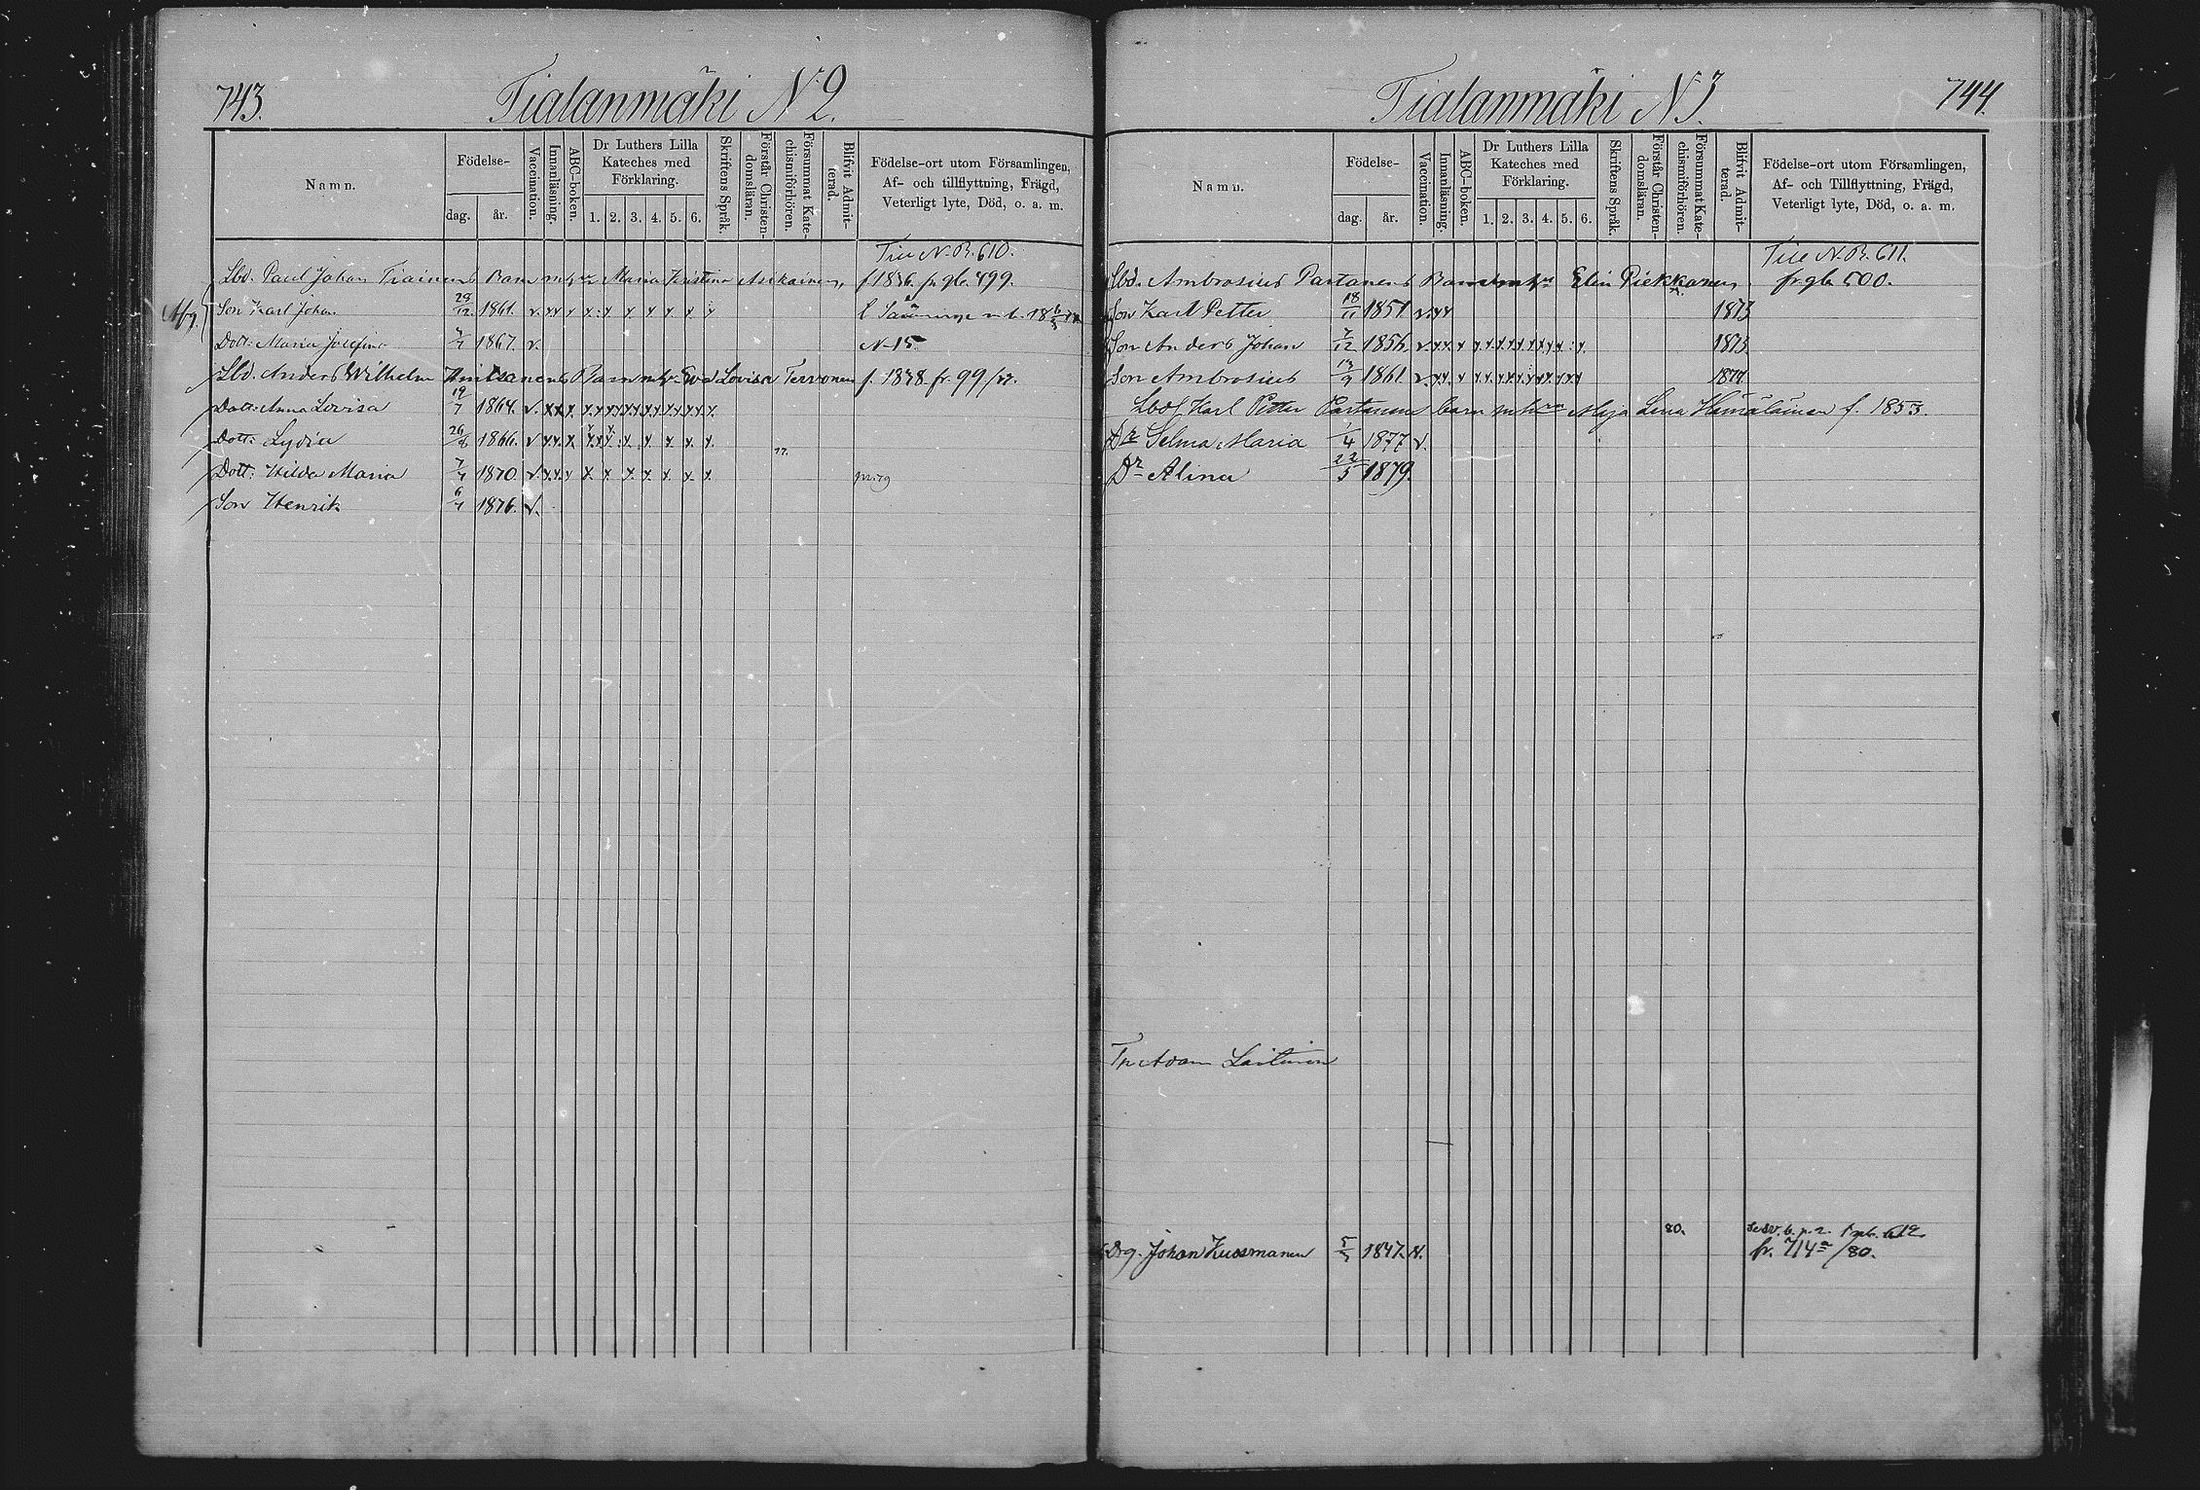 743.
Tialanmäki N 2.
Namn.
Födelse-
dag.
år.
Vaccination.
Innanläsning.
ABC-boken.
Dr Luthers Lilla
Kateches med
Förklaring.
1. 2. 3. 4. 5. 6.
Skriftens Språk.
Förstår Christen-
domsläran.
Försummat Kate-
chismiförhören.
Blifvit Admit-
terad.
Födelse-ort utom Församlingen,
Af- och tillflyttning, Frägd,
Veterligt lyte, Död, o. a. m.
N. B. 610.
Lbd. Paul Johan Tiainens Barn Maria Kristina Asikainen, f 1836. fr gb. 499.
Son Karl Johan 29/12 1861. v.
Dott: Maria Josefina 1867. v. N 15
Lbd. Anders Wilhelm Barn Eva Lovisa Tervonen f. 1838 fr. 99/77.
Dott: Anna Lovisa 19/7 1864. v.
Dott: Lydia 1866. v 77.
Dott: Hilda Maria 1870. v.
Son Henrik 1876. v.
744.
Tialanmäki N 3.
Namn.
Födelse-
dag.
år.
Vaccination.
Innanläsning.
ABC-boken.
Dr Luthers Lilla
Kateches med
Förklaring.
1. 2. 3. 4. 5. 6.
Skriftens Språk.
Förstår Christen-
domsläran.
Försummat Kate-
chismiförhören.
Blifvit Admit-
terad.
Födelse-ort utom Församlingen,
Af- och Tillflyttning, Frägd,
Veterligt lyte, Död, o. a. m.
N. B. 611.
Lbd. Ambrosius Partanens Barn Elin Piekkanen, fr gb 500.
Son Karl Petter 18/11 1851 v. 1873
Son Anders Johan 7/12 1856. v. 1873
Son Ambrosius 1861 v. 1877
Lbd Karl Petter Partanens barn Maja Lena Hämäläinen f. 1853.
Dr Selma Maria 1/4 1877 v.
Dr Alina 22/5 1879.
Adam Laitinen
80. gb. 612
Drg. Johan Kuosmanen 5/5 1847. fr. 714a/80.